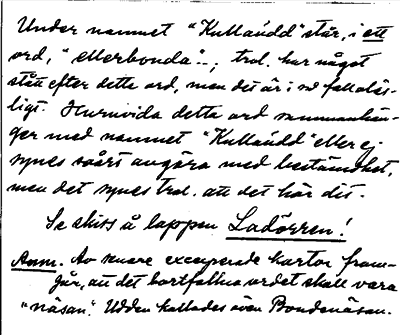 Under namnet "Kullaudd" står, i ett
ord, "ellerbonda"..; trol. har något
stått efter detta ord, men det är i så fall oläs-
ligt. Huruvida detta ord sammanhän-
ger med namnet "Kullaudd" eller ej
synes svårt avgöra med bestämdhet,
men det synes trol. att det hör dit.
Se skiss å lappen Ladörren!
Anm. Av senare excerperade kartor fram-
går, att det bortfallna ordet skall vara
"näsan". Udden kallades även Bondenäsan.